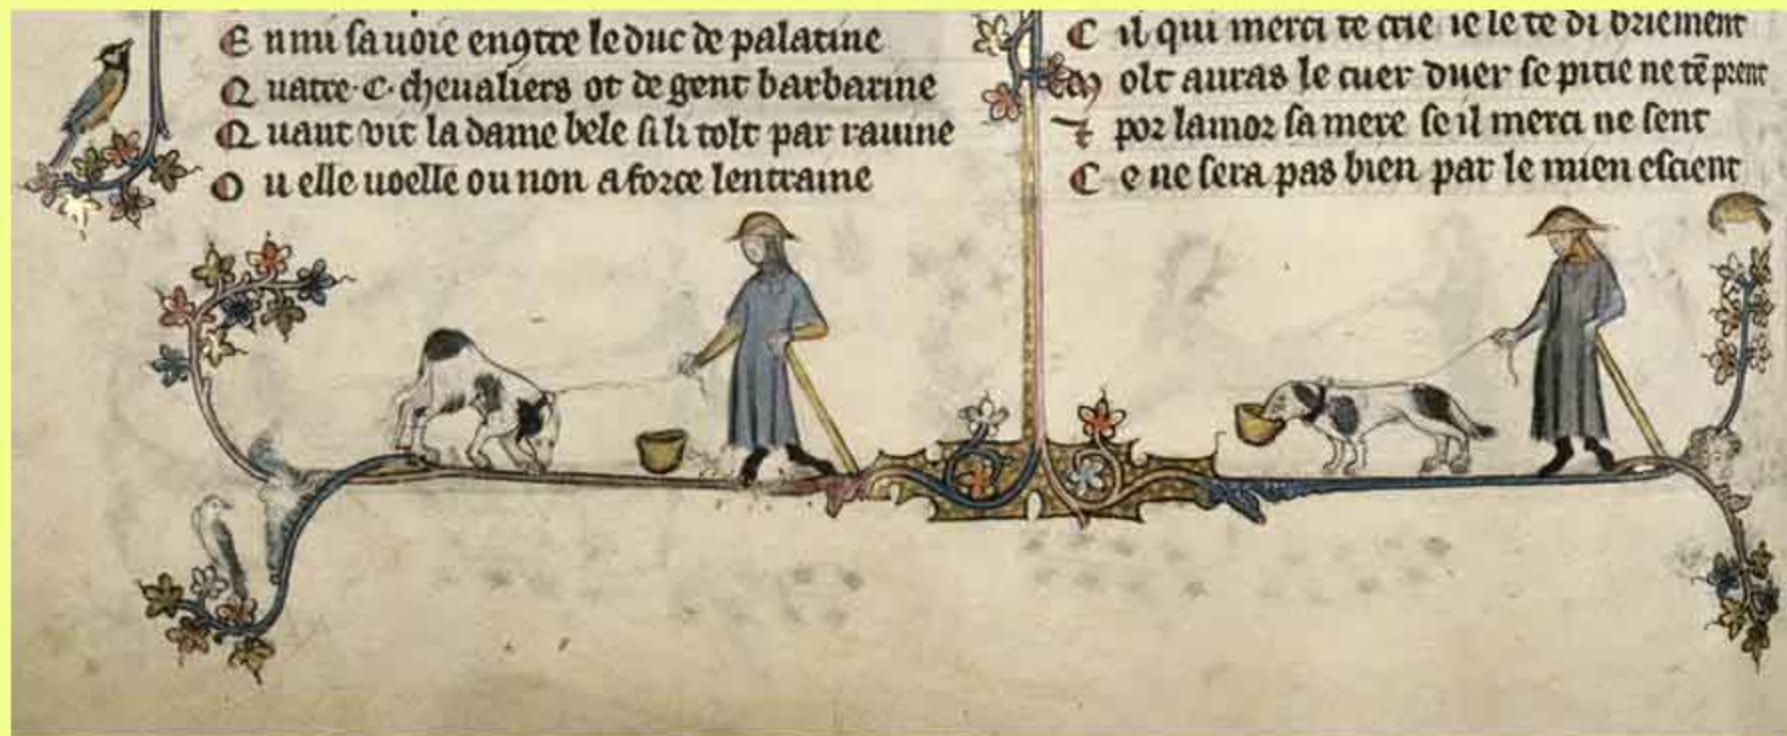 E nmi sa uoie engtre le duc de palatine
Q uatre·C·cheualiers ot de gent barbarine
Q uant vit la dame bele si li tolt par rauine
O u elle uoelle ou non a force lentraine
C il qui merci te crie ie le te di briement
M olt auras le cuer duer se pitie ne tē prent
⁊ por lamor sa mere se il merci ne sent
C e ne sera pas bien par le mien escient